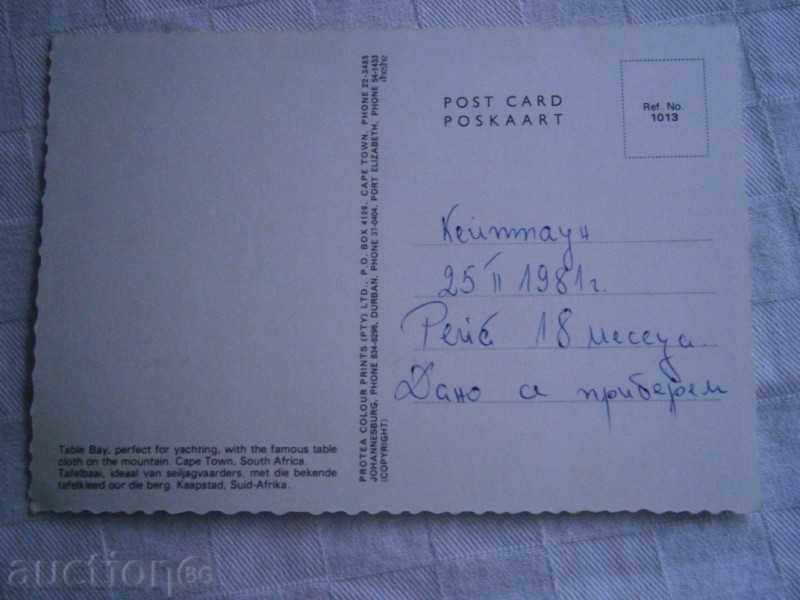 POST CARD
POSKAART
Ref. No.
1013
Кейптаун
25 II 1981 г.
Рейс 18 месеца
Дано се приберем
PROTEA COLOUR PRINTS (PTY) LTD., P.O. BOX 4126, CAPE TOWN, PHONE 22-3483
JOHANNESBURG, PHONE 834-6296, DURBAN, PHONE 31-0404, PORT ELIZABETH, PHONE 54-1433
(COPYRIGHT)
Table Bay, perfect for yachting, with the famous table
cloth on the mountain. Cape Town, South Africa.
Tafelbaai, ideaal van seiljagvaarders, met die bekende
tafelkleed oor die berg. Kaapstad, Suid-Afrika.
auction.bg